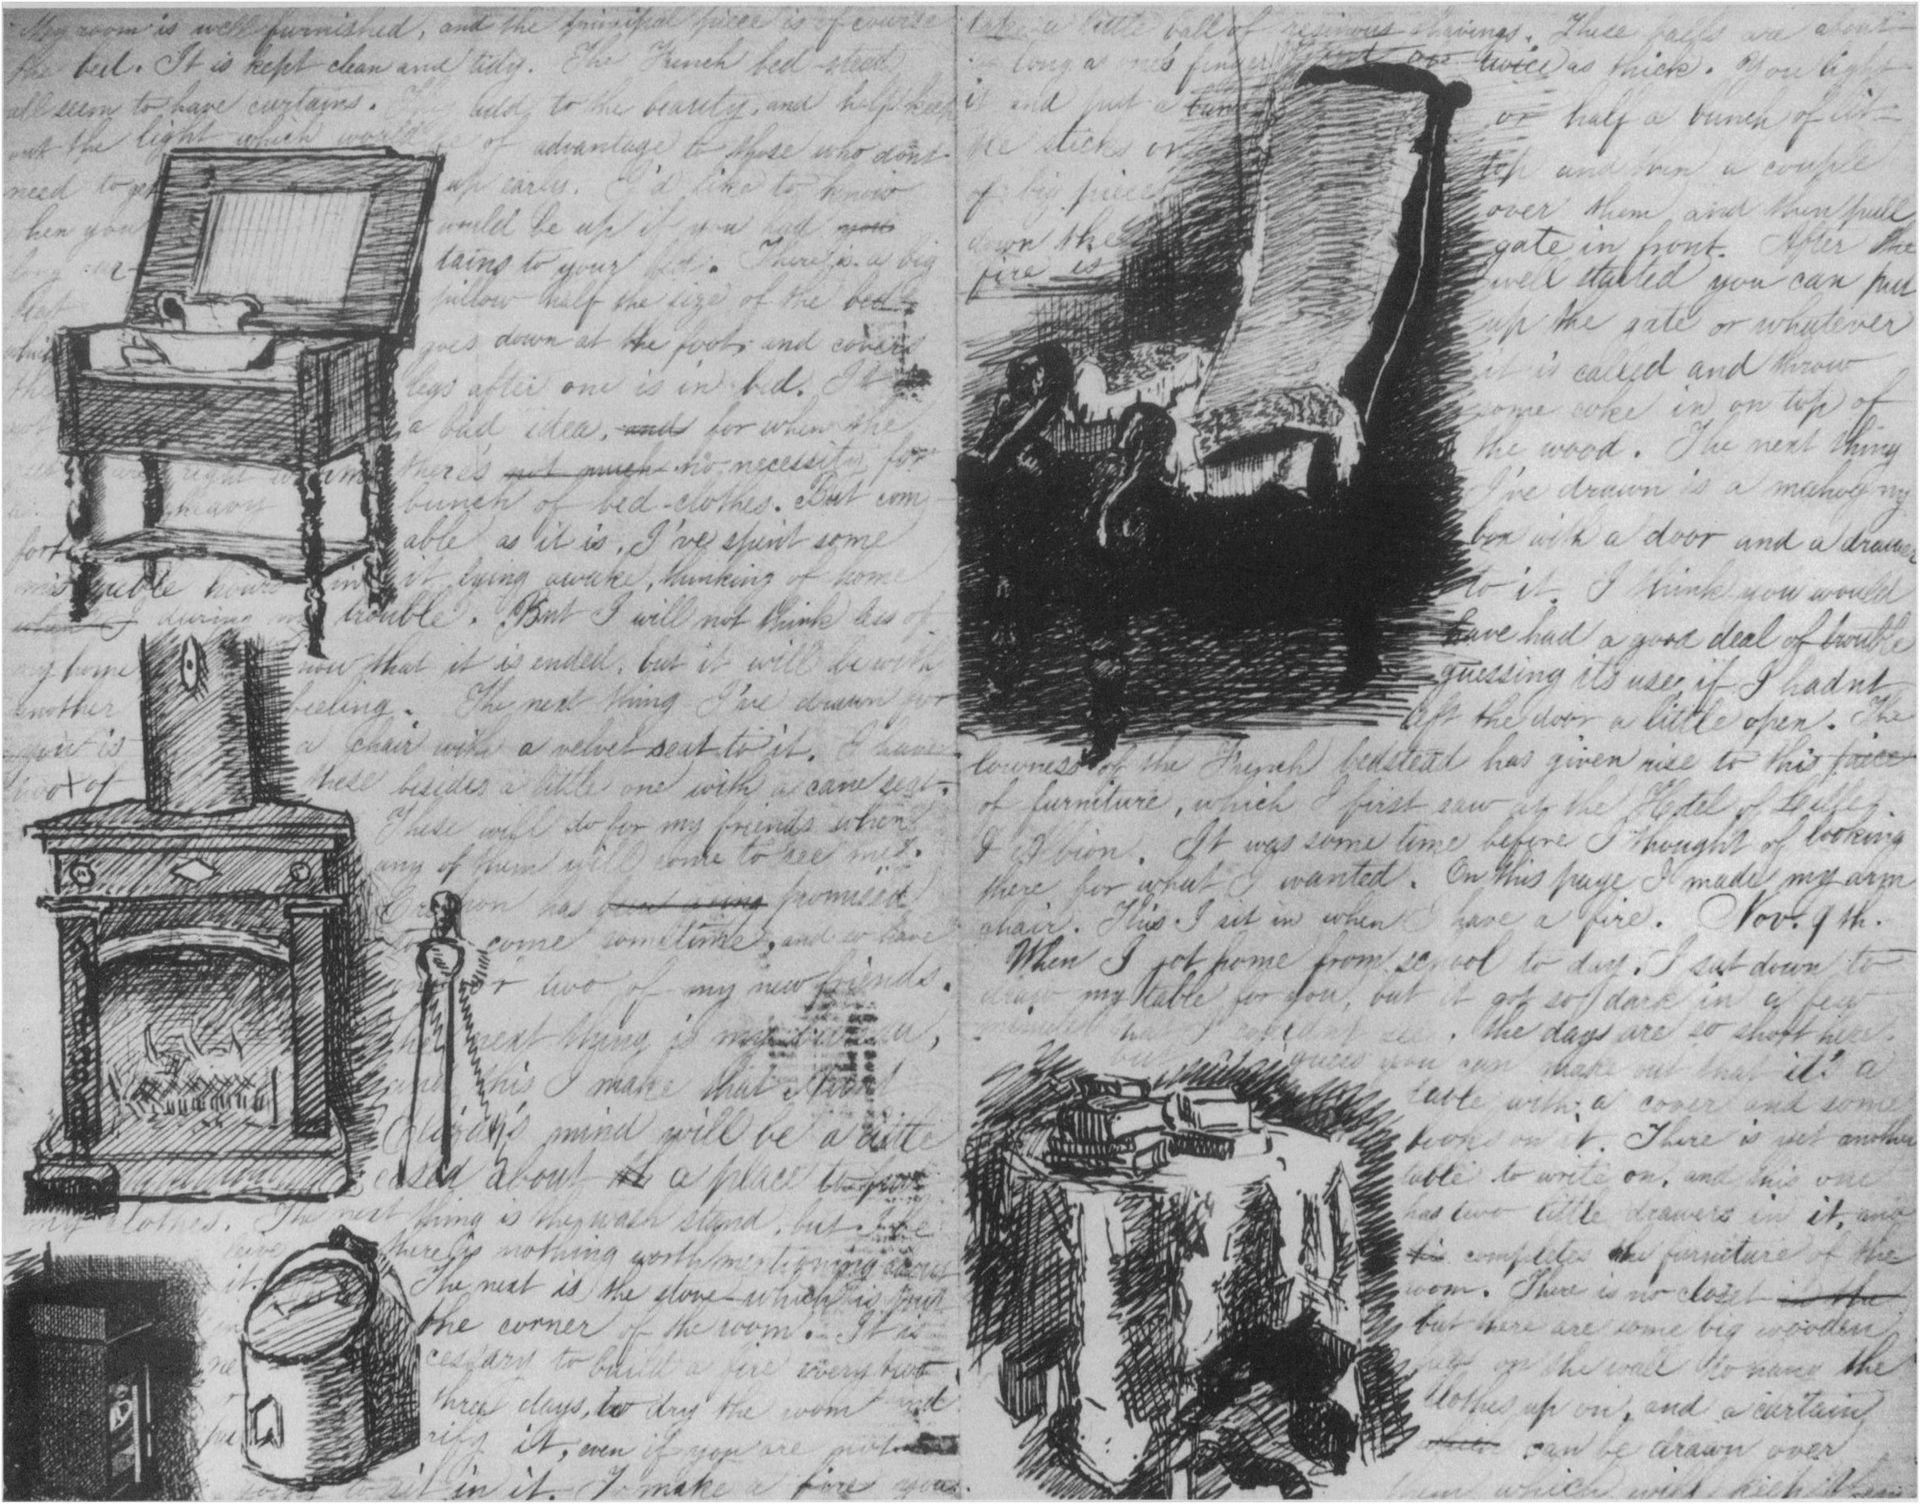 My room is well furnished, and the principal piece is of course
the bed. It is kept clean and tidy. The French bed-steads
all seem to have curtains. They add to the beauty, and help keep
out the light which would be of advantage to those who dont
need to get up early. I'd like to know
when you would be up if you had
long cur- tains to your bed. There is a big
pillow half the size of the bed
which goes down at the foot and covers
the legs after one is in bed. It
not a bad idea, and for when the
there's not much no necessity for
a heavy bunch of bed-clothes. But com-
fort able as it is, I've spent some
miserable hours in it lying awake, thinking of home
when I during my trouble. But I will not think less of
my home now that it is ended, but it will be with
another feeling. The next thing I've drawn for
you is a chair with a velvet seat to it. I have
two of these besides a little one with a cane seat.
These will do for my friends when
any of them will come to see me.
has been going promised
to come sometime, and so have
one or two of my new friends.
The next thing is my bureau,
and this I make that Aunt
Eliza's mind will be a little
eased about a place to put
my clothes. The next thing is the wash stand, but
there is nothing worth mentioning about
it. The next is the stove which is
in the corner of the room. It is
necessary to build a fire every two
or three days, to dry the room and
purify it, even if you are not
going to sit in it. To make a fire you
take a little ball of resinous shavings. These balls are about
as long as one's finger and twice as thick. You light
it and put a bunch or half a bunch of lit-
tle sticks on top and then a couple
of big pieces over them and then pull
down the gate in front. After the
fire is well started you can pull
up the gate or whatever
it is called and throw
some coke in on top of
the wood. The next thing
I've drawn is a mahogny
box with a door and a drawer
to it. I think you would
have had a good deal of trouble
guessing its use, if I hadnt
left the door a little open. The
lowness of the French bedstead has given rise to this piece
of furniture, which I first saw at the Hotel of Lille
& Albion. It was some time before I thought of looking
there for what I wanted. On this page I made my arm
chair. This I sit in when I have a fire. Nov. 9th.
When I got home from school to day, I sat down to
draw my table for you, but it got so dark in a few
minutes that I couldn't see. The days are so short here.
but I guess you can make out that it's a
table with a cover and some
books on it. There is yet another
table to write on, and this one
has two little drawers in it, and
completes the furniture of the
room. There is no closet in the
but there are some big wooden
pegs on the wall to hang the
clothes up on, and a curtain
which can be drawn over
them which will keep them